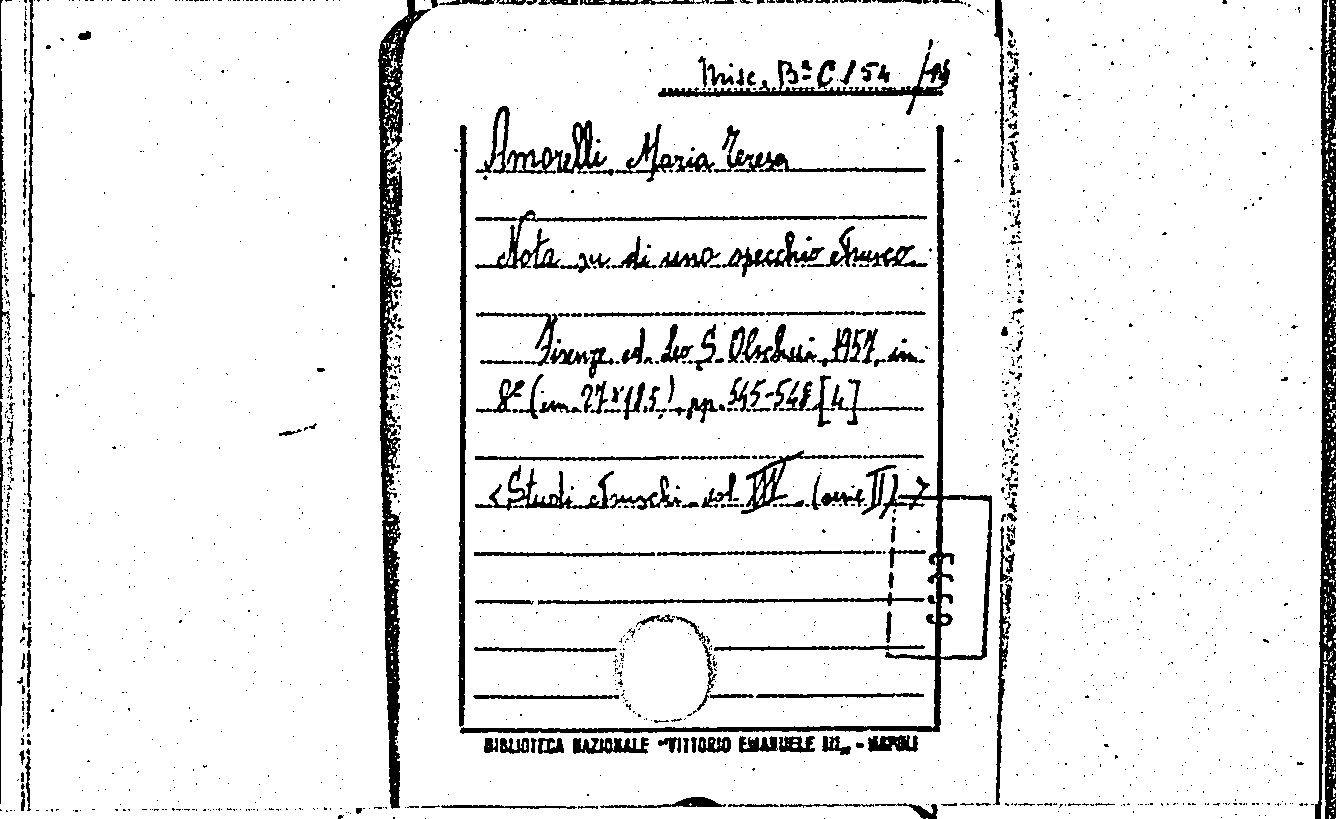 Misc. Bª C 154 /14
Amorelli, Maria Teresa
Nota su di uno specchio etrusco.
Firenze, ed. Leo S. Olschki, 1957, in
8º (cm. 27x18.5), pp. 545-548 [4]
<Studi etruschi. vol. (serie II)>
BIBLIOTECA NAZIONALE "VITTORIO EMANUELE III„ - NAPOLI